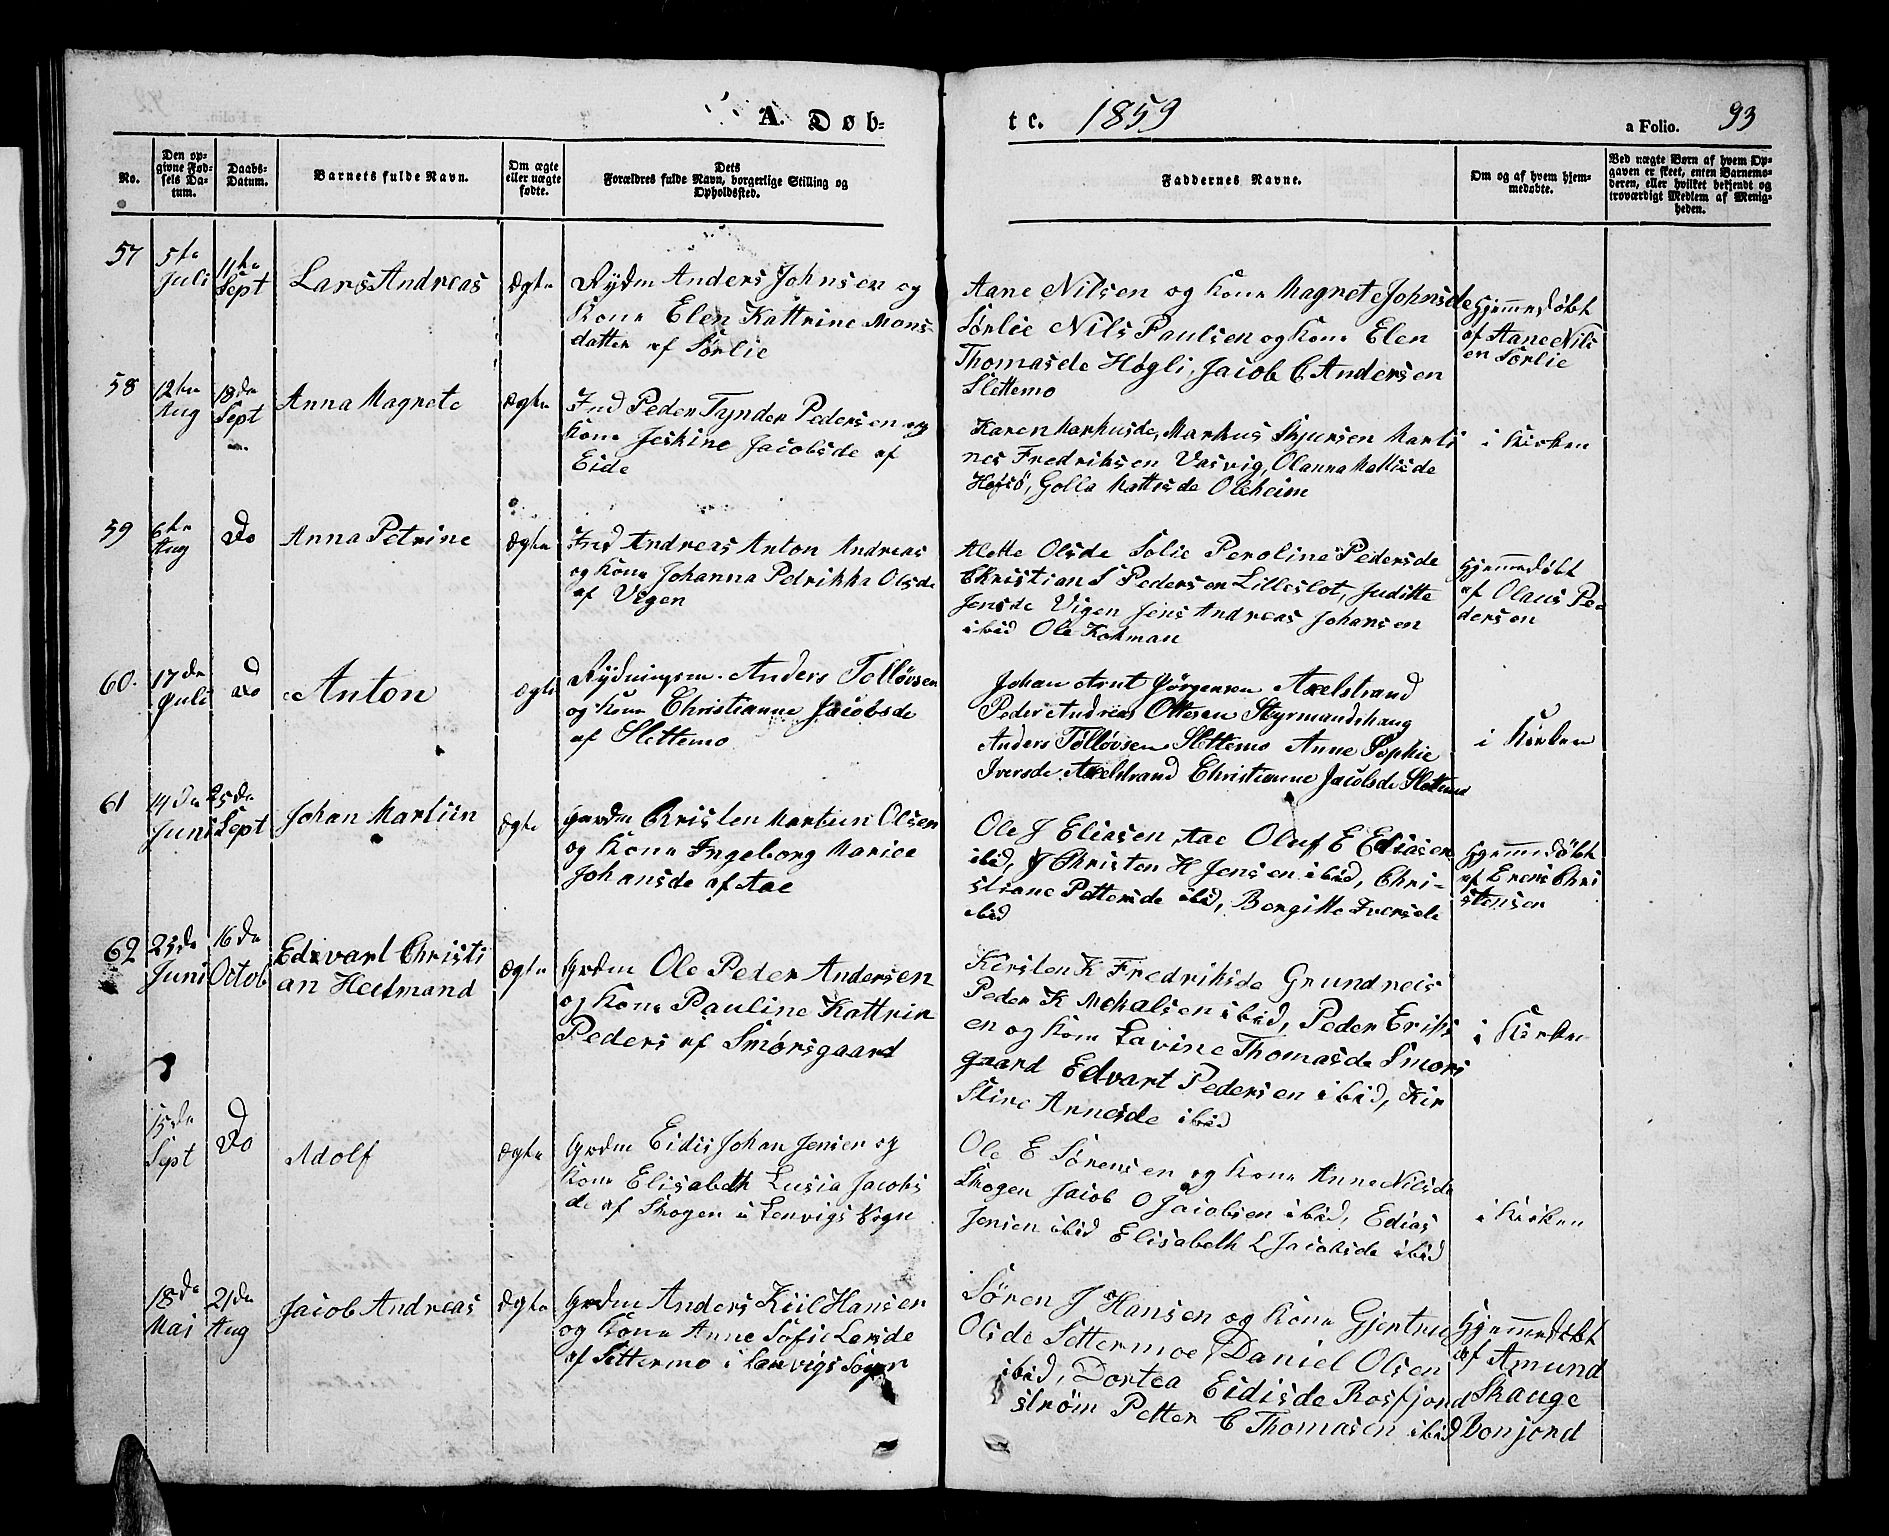 A. Døb-
te. 1859
a Folio. 93
No.
Den op-
givne Fød-
sels Da-
tum.
Daabs-
Datum.
Barnets fulde Navn.
Om ægte
eller uægte
fødte.
Dets
Forældres fulde Navn, borgerlige Stilling og
Opholdssted.
Faddernes Navne.
Om og af hvem hjem-
medøbte.
Ved uægte Børn af hvem Op-
gaven er skeet, enten Barnemo-
deren, eller hvilket bekjendt og
troværdigt Medlem af Menig-
heden.
57
5te
Juli
11te
Sept
Lars Andreas
Ægte
Rydm Anders Johnsen og
Kone Elen Kattrine Mons-
datter af Sørlie
Aane Nilsen og Kone Magrete Johnsde
Sørlie Nils Paulsen og Kone Elen
Thomasde Høgli, Jacob C Andersen
Slettemo
Hjemmedøbt
af Aane Nils
en Sørlie
58
12te
Aug
18de
Sept
Anna Magrete
Ægte
Ind Peder Tynder Pedersen og
Kone Jeskine Jacobsde af
Eide
Karen Markusde, Markus Sjursen Marti
nes Fredriksen Vasvig, Olanna Mattisde
Hofsö, Golla Mattisde Oleheim
i Kirken
59
6te
Aug
Do
Anna Petrine
Ægte
Ind Andreas Anton Andreas
og Kone Johanna Pedrikka Olsde
af Vigen
Alette Olsde Solie Peroline Pedersde
Christian S Pedersen Lilleslot, Juditte
Jensde Vigen Jens Andreas Johansen
ibid Ole Kohman
Hjemmedøbt
af Olaus Pe
dersen
60.
17de
Juli
Do
Anton
Ægte
Rydningsm. Anders Tolløvsen
og Kone Christianne Jacobsde
af Slettemo
Johan Arnt Jørgensen Axelstrand
Peder Andreas Ottesen Styrmandshaug
Anders Tølløvsen Slettemo Anne Sophie
Iversde Axelstrand Christianne Jacobsde Slettemo
i Kirken
61
14de
Juni
25de
Sept
Johan Martien
Ægte
Gardm Christen Martin Olsen
og Kone Ingeborg Mariee
Johansde af Aae
Ole J Eliasen Aae Oluf E Ediasen
ibid, J Christen H Jensen ibid, Chri-
stiane Pettersde ibid, Bergitte Iversde
ibid
Hjemmedøbt
af Erens Chri
stensen
62
25de
Juni
16de
Octob
Edevart Christi
an Heitmand
Ægte
Grdm Ole Peder Andersen
og Kone Pauline Kattrin
Peders af Smørsgaard
Kirsten K Fredriksde Grundreis
Peder K Mekalsen ibid, Peder Eriks
en og Kone Lavine Thomasde Smørs
gaard Edvart Pedersen ibid, Kir
stine Arnesde ibid
i Kirken
15de
Sept
Do
Adolf
Ægte
Grdm Eidis Johan Jensen og
Kone Elisabeth Lusia Jacobs
de af Skogen i Lenvigs Sogn
Ole E Sørensen og Kone Anne Nilsde
Skogen Jacob O Jacobsen ibid, Edias
Jensen ibid Elisabeth L Jacobsde ibid
i Kirken
18de
Mai
21de
Aug
Jacob Andreas
Ægte
Grdm Anders Kiil Hansen
og Kone Anne Sofie Larsde
af Settermo i Lenvigs Sogn
Søren J Hansen og Kone Gjertrue
Olsde Settermoe, Daniel Olsen
ibid, Dortea Eidisde Rosfjord
strøm Petter C Thomasen ibid
Hjemmedøbt
af Amund
Skauge
Bonjord